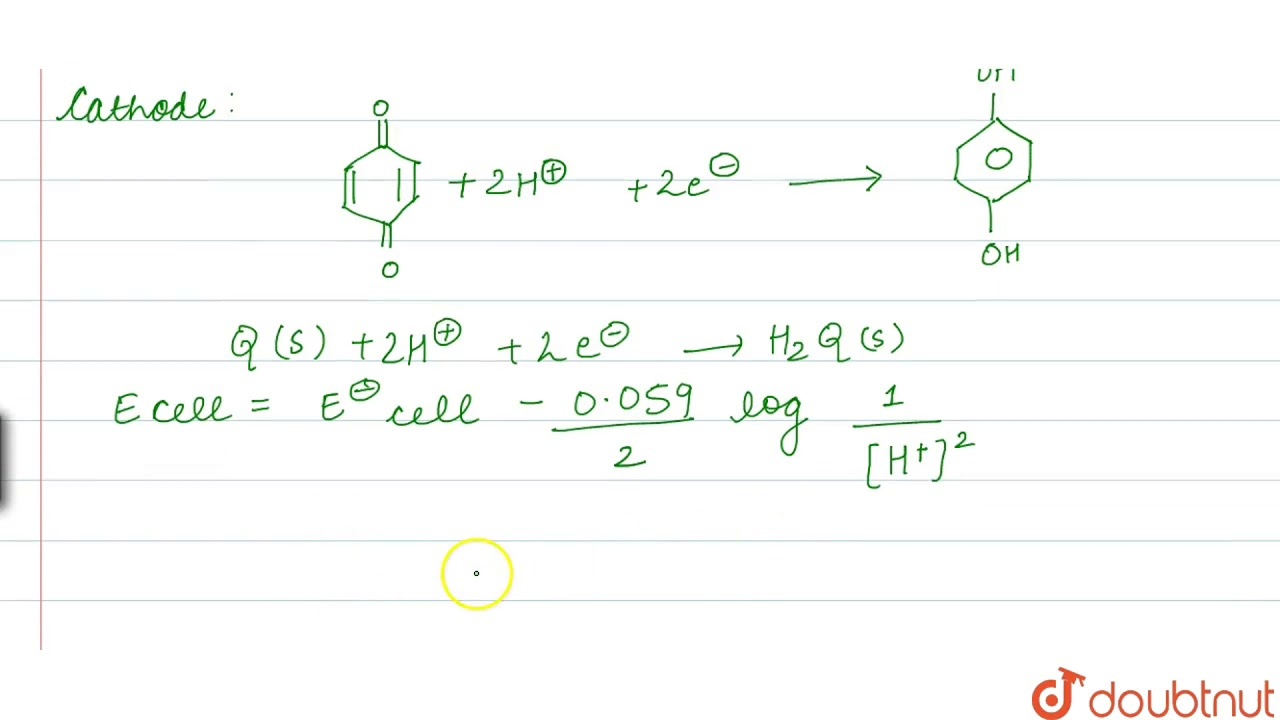 Cathode:
O
+ 2H⊕ + 2e⊖ ⟶
O
OH
Q(s) + 2H⊕ + 2e⊖ ⟶ H₂Q(s)
E cell = E⊖ cell - 0.059/2 log 1/[H⁺]²
doubtnut